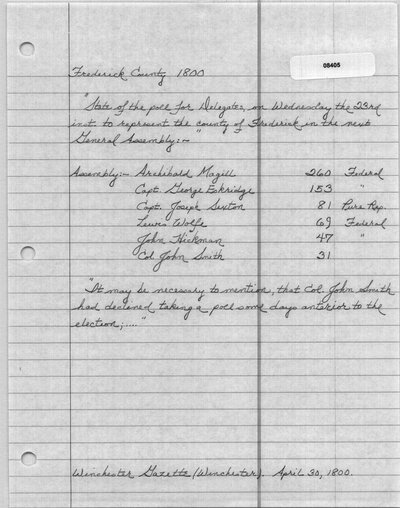 08405
Frederick County 1800
"State of the poll for Delegates, on Wednesday the 23rd
inst. to represent the county of Frederick in the next
General Assembly:~"
Assembly:~ Archibald Magill 260 Federal
Capt. George Eskridge 153 "
Capt. Joseph Sexton 81 Pure Rep.
Lewis Wolfe 69 Federal
John Hickman 47 "
Col John Smith 31
"It may be necessary to mention, that Col. John Smith
had declined taking a poll some days anterior to the
election;...."
Winchester Gazette (Winchester). April 30, 1800.